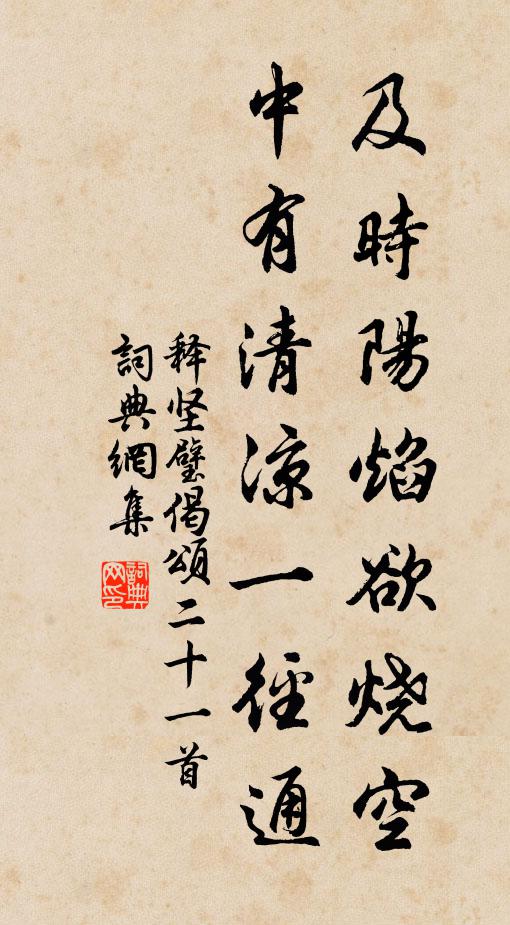 及時陽焰欲烧空
中有清凉一徑通
释坚璧偈頌二十一首
詞典網集
詞典网印